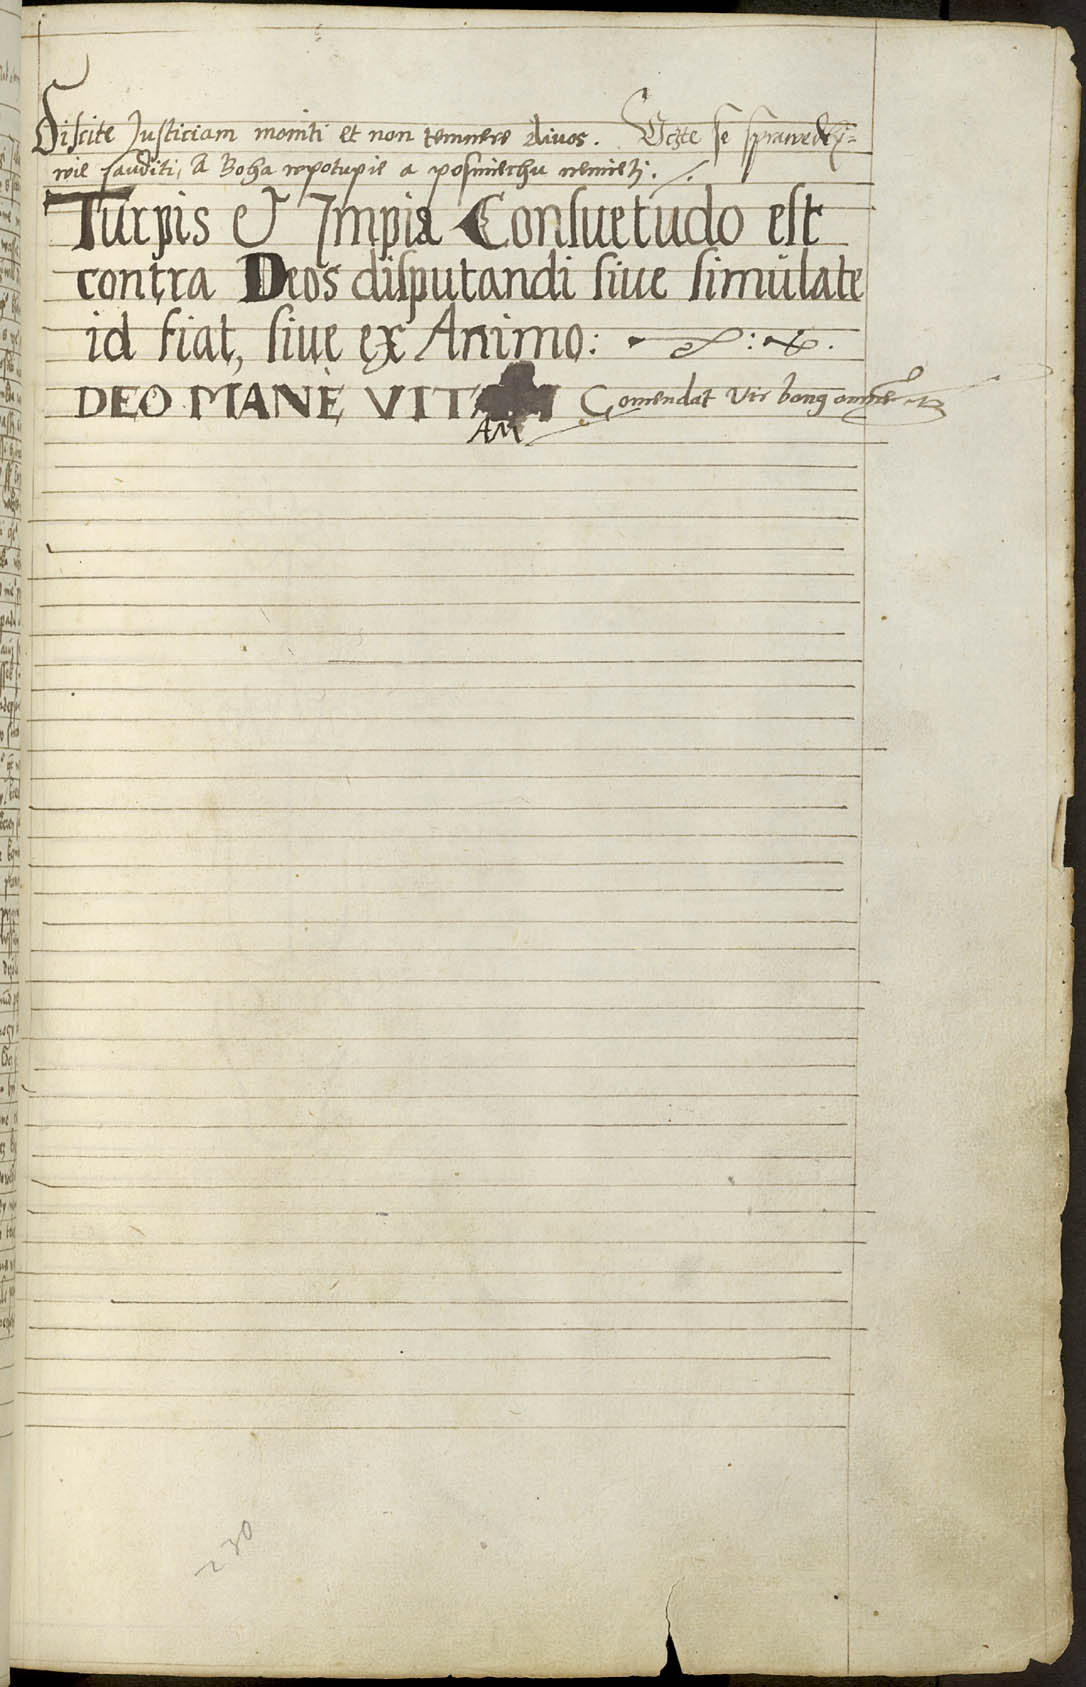 Discite Justiciam moniti et non temnere divos. Vczte se sprawedlj=
wie sauditi, A Boha wpotupie a posmiechu nemieti.
Turpis & Impia Consuetudo est
contra Deos disputandi siue simulate
id fiat, siue ex Animo:
DEO MANE VITAM Comendat Vir bonus
AM
230